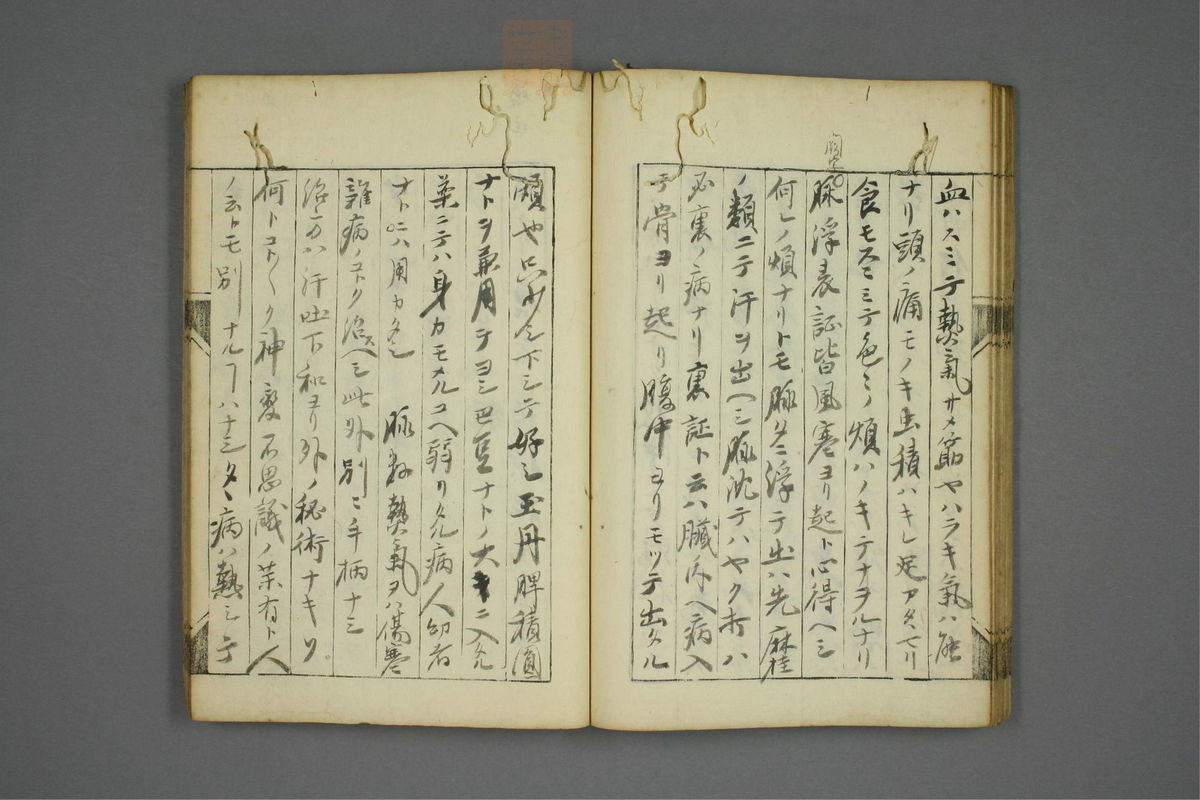 血ハスミテ熱氣サメ筋ヤハラキ氣ハ融
ナリ頭ノ痛モノキ虫積ハキレ足アタヽマリ
食モスヽミテ色々ノ煩ハノキテナヲルナリ
脉浮表証皆風寒ヨリ起ト心得ヘシ
何レノ煩ナリトモ脉タニ浮テ出ハ先麻桂
ノ類ニテ汗ヲ出ヘシ脉沈テハヤク打ハ
必裏ノ病ナリ裏証ト云ハ臓内ヘ病入
テ骨ヨリ起リ腹中ヨリモツテ出タル
煩也只少シ下シテ好シ玉丹脾積圓
ナトヲ兼用テヨシ巴豆ナトノ大キニ入タル
薬ニテハ身カモメルユヘ弱リタル病人幼者
ナトニハ用カタシ 脉数熱氣ヲハ傷寒
雜病ノコトク治スヘシ此外別ニ手柄ナシ
治方ハ汗吐下和ヨリ外ノ秘術ナキソ
何トコトコトク神変不思議ノ薬有ト人
ノ云トモ別ナルヿハナシタヽ病ハ熱シテ